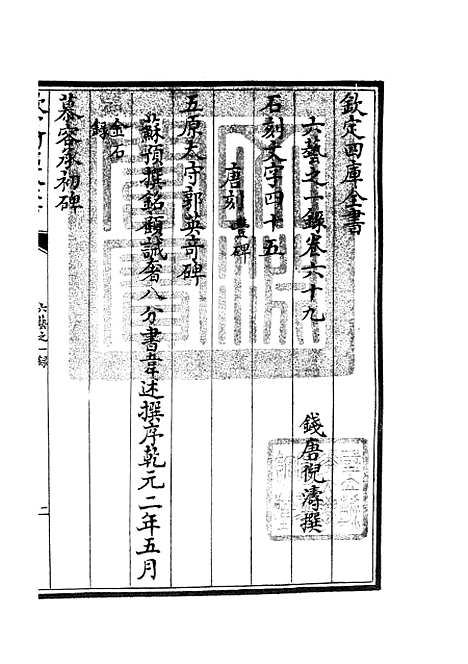 欽定四庫全書
六藝之一錄卷六十九
錢唐倪濤撰
石刻文字四十五
唐刻豐碑
五原太守郭英奇碑
蘇預撰銘顧誡奢八分書韋述撰序乾元二年五月
金石
錄
慕容承初碑
六藝之一錄